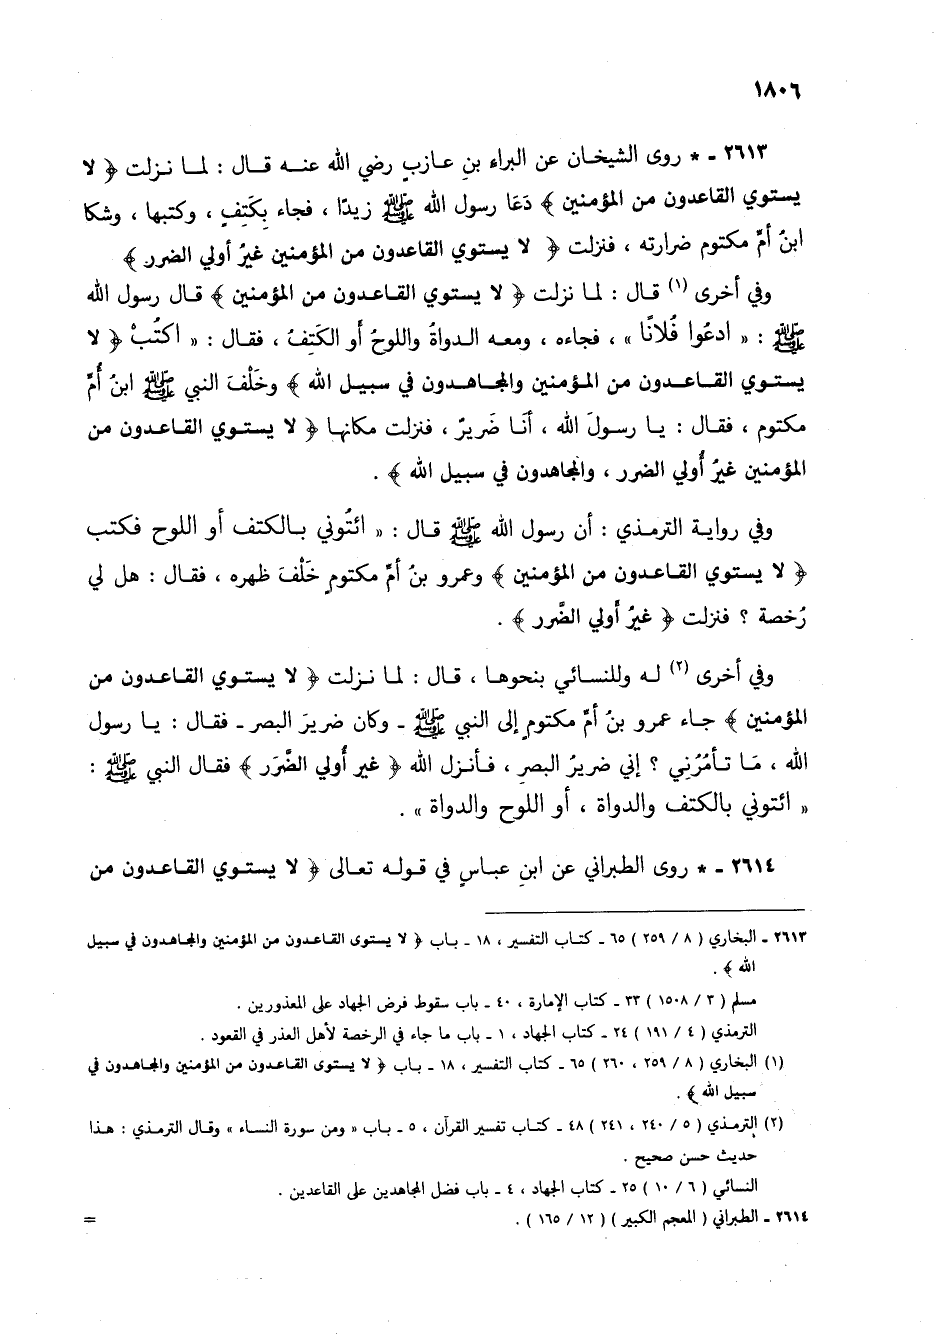 ١٨٠٦
٢٦١٣ ـ * روى الشيخان عن البراء بنِ عـازبٍ رضي الله عنـه قـال : لمـا نـزلت ﴿ لا
يستوي القاعدون من المؤمنين ﴾ دَعَا رسول الله ﷺ زيدًا ، فجاء بِكَتِفٍ ، وكتبها ، وشكا
ابنُ أمِّ مكتوم ضرارته ، فنزلت ﴿ لا يستوي القاعدون من المؤمنين غيرُ أولي الضرر ﴾
وفي أخرى (١) قـال : لمـا نزلت ﴿ لا يستوي القـاعـدون من المؤمنين ﴾ قـال رسول الله
ﷺ : « ادعُوا فُلانًا » ، فجاءه ، ومعـه الـدواةُ واللوحُ أو الكَتِفُ ، فقـال : « اكتُبْ ﴿ لا
يستـوي القـاعـدون من المـؤمنين والمجـاهـدون في سبيـل الله ﴾ وخَلْفَ النبي ﷺ ابنُ أُمِّ
مكتوم ، فقـال : يـا رسولَ الله ، أنَـا ضَريرٌ ، فنزلت مكانهـا ﴿ لا يستوي القـاعـدون من
المؤمنين غيرُ أُولي الضرر ، والمجاهدون في سبيل الله ﴾ .
وفي روايـة الترمـذي : أن رسول الله ﷺ قـال : « ائتُوني بـالكتف أو اللوح فكتب
﴿ لا يستوي القـاعـدون من المؤمنين ﴾ وعمرو بنُ أمِّ مكتومٍ خَلْفَ ظهره ، فقـال : هل لي
رُخصة ؟ فنزلت ﴿ غيرُ أُولي الضَّرر ﴾ .
وفي أخرى (٢) لـه وللنسـائي بنحوهـا ، قـال : لمـا نـزلت ﴿ لا يستـوي القـاعـدون من
المؤمنين ﴾ جـاء عمرو بنُ أمِّ مكتومٍ إلى النبي ﷺ ـ وكان ضريرَ البصر ـ فقـال : يـا رسول
الله ، مَـا تـأمُرُني ؟ إني ضريرُ البصر ، فـأنـزل الله ﴿ غير أُولي الضَّرَر ﴾ فقـال النبي ﷺ :
« ائتوني بالكتف والدواة ، أو اللوح والدواة » .
٢٦١٤ ـ * روى الطبراني عن ابنِ عبـاسٍ في قـولـه تعـالى ﴿ لا يستـوي القـاعـدون من
٢٦١٣ ـ البخاري ( ٨ / ٢٥٩ ) ٦٥ ـ كتـاب التفسير ، ١٨ ـ بـاب ﴿ لا يستوى القـاعدون من المؤمنين والمجاهدون في سبيل
الله ﴾ .
مسلم ( ٣ / ١٥٠٨ ) ٣٣ ـ كتاب الإمارة ، ٤٠ ـ باب سقوط فرض الجهاد على المعذورين .
الترمذي ( ٤ / ١٩١ ) ٢٤ ـ كتاب الجهاد ، ١ ـ باب ما جاء في الرخصة لأهل العذر في القعود .
(١) البخاري ( ٨ / ٢٥٩ ، ٢٦٠ ) ٦٥ ـ كتاب التفسير ، ١٨ ـ بـاب ﴿ لا يستوى القـاعدون من المؤمنين والمجـاهدون في
سبيل الله ﴾ .
(٢) الترمـذي ( ٥ / ٢٤٠ ، ٢٤١ ) ٤٨ ـ كتـاب تفسير القرآن ، ٥ ـ بـاب « ومن سورة النسـاء » وقال الترمـذي : هـذا
حديث حسن صحيح .
النسائي ( ٦ / ١٠ ) ٢٥ ـ كتاب الجهاد ، ٤ ـ باب فضل المجاهدين على القاعدين .
٢٦١٤ ـ الطبراني ( المعجم الكبير ) ( ١٢ / ١٦٥ ) . =